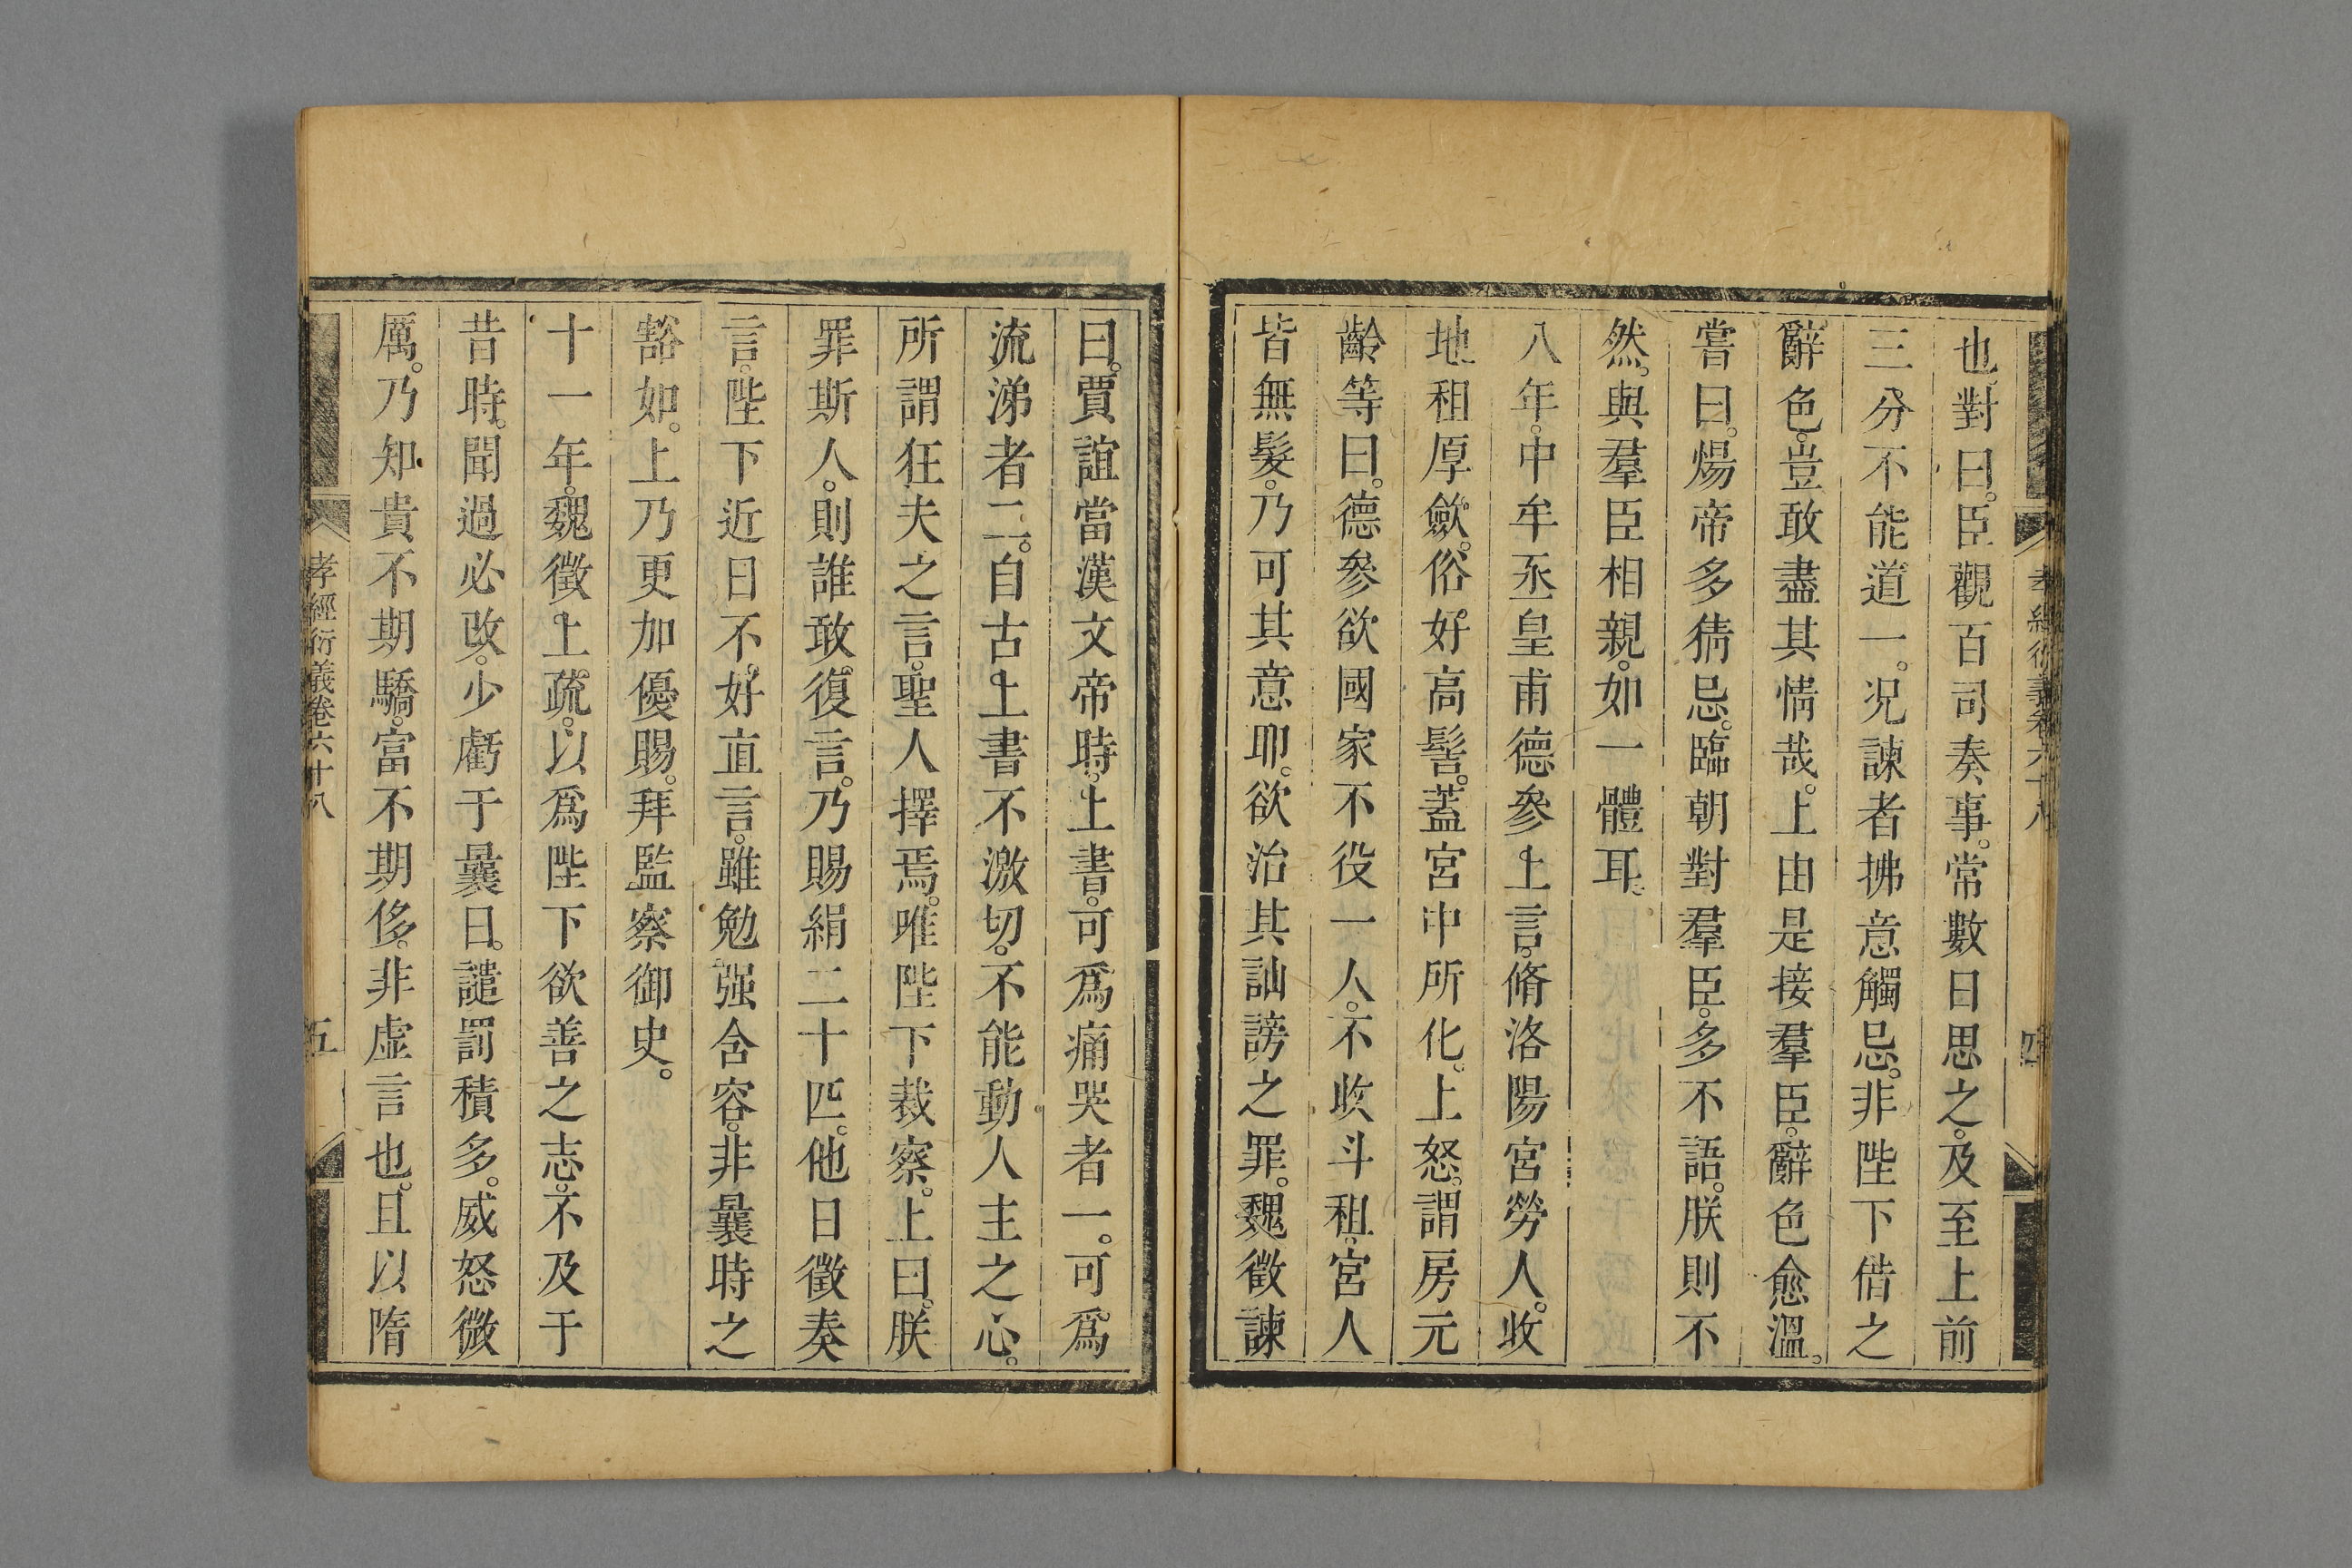 孝經衍義卷六十八 四
也。對曰。臣觀百司奏事。常數日思之。及至上前
三分不能道一。况諫者拂意觸忌。非陛下借之
辭色。豈敢盡其情哉。上由是接羣臣。辭色愈溫。
嘗曰。煬帝多猜忌。臨朝對羣臣。多不語。朕則不
然。與羣臣相親。如一體耳。
八年。中牟丞皇甫德參上言。脩洛陽宮勞人。收
地租厚歛。俗好高髻。蓋宮中所化。上怒。謂房元
齡等曰。德參欲國家不役一人。不收斗租。宮人
皆無髮。乃可其意耶。欲治其訕謗之罪。魏徵諫
曰。賈誼當漢文帝時。上書。可爲痛哭者一。可爲
流涕者二。自古上書不激切。不能動人主之心。
所謂狂夫之言。聖人擇焉。唯陛下裁察。上曰。朕
罪斯人。則誰敢復言。乃賜絹二十匹。他日徵奏
言。陛下近日不好直言。雖勉强含容。非曩時之
豁如。上乃更加優賜。拜監察御史。
十一年。魏徵上疏。以爲陛下欲善之志。不及于
昔時。聞過必改。少虧于曩日。譴罰積多。威怒微
厲。乃知貴不期驕。富不期侈。非虛言也。且以隋
孝經衍義卷六十八 五